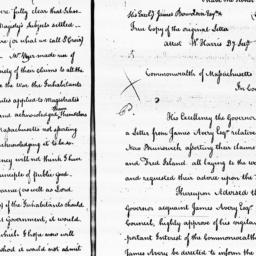 ere fully clear that these
Majesty's Subjects settled
ere (or what we call St Croix)
Mr Ayer made use of
of their claims to all the
the War the Inhabitants
applied to Magistrates
and acknowledged themselves
Massachusetts not aporting
acknowledging it to be so.
ency will not think I have
principle of public good.
as well as Lord
of the Inhabitants should
Government, it would
which I hope now will
would not admit
His Excely James Bowdoin Esqr
True Copy of the original Letter
Attest W. Harris Dy Secy
Commonwealth of Massachusetts
In Co
His Excellency the Governor
a Letter from James Avery Esqr relative
New Brunswick aporting their claims
and Fred Island all laying to the w
and requested their advice upon the
Thereupon Advised th
Governor acquaint James Avery Esqr
Council, highly approve of his vigilan
portant Interest of the Commonwealth
James Avery be directed to inform the